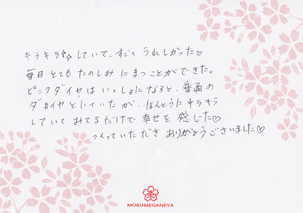 キラキラしていて、すごくうれしかった♡
毎日とてもたのしみにまつことができた。
ピンクダイヤはいっしょになると、普通の
ダイヤとにていたが、ほんとうにキラキラ
していてみてるだけで幸せを感じた♡
つくっていただきありがとうございました♡
MOKUMEGANEYA